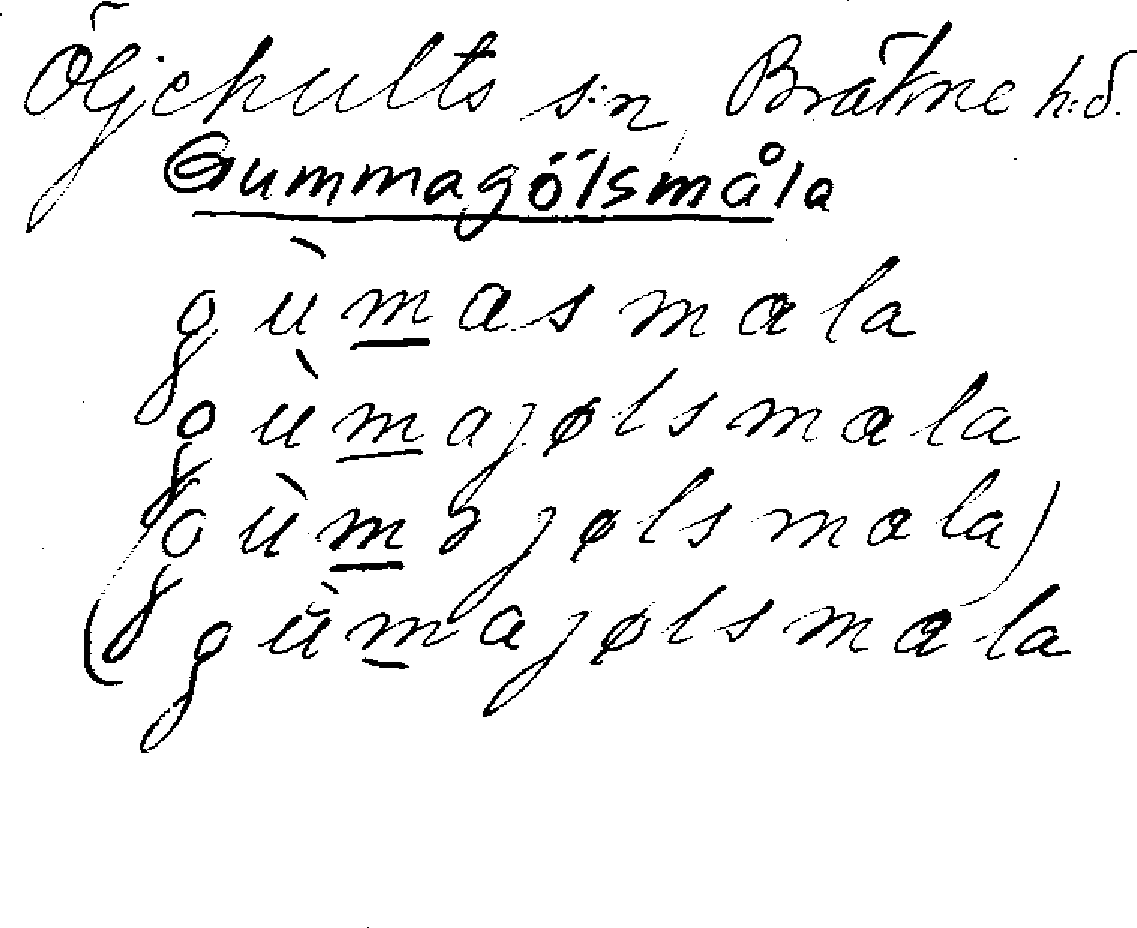 Öljehults s:n, Bräkne h:d.
Gummagölsmåla
gùmasmala
gùmajølsmala
(gùməjølsmala)
(gùmajølsmala